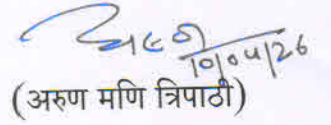 10/04/26
(अरुण मणि त्रिपाठी)